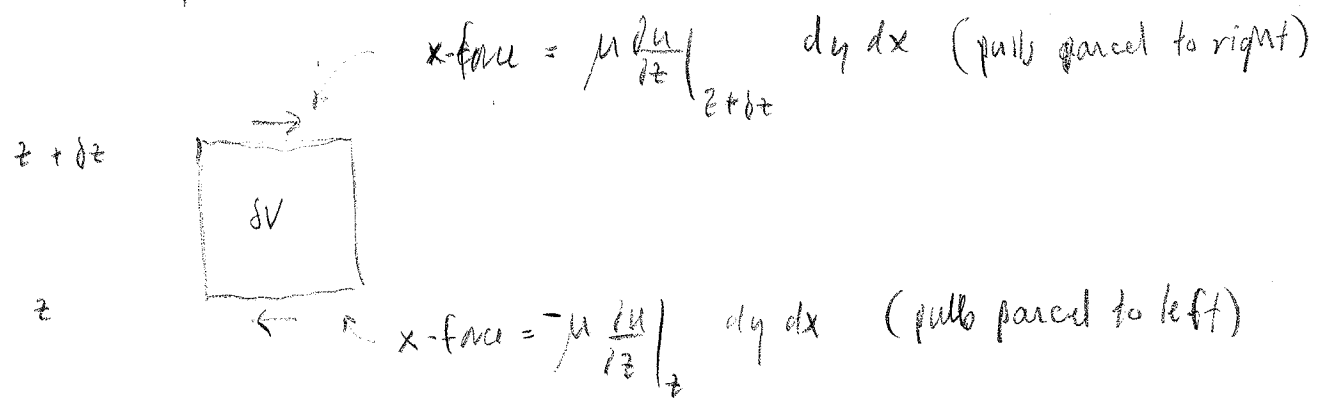 x-force = μ ∂u/∂z |z+δz dy dx (pulls parcel to right)
z + δz
δV
z
x-force = -μ ∂u/∂z |z dy dx (pulls parcel to left)